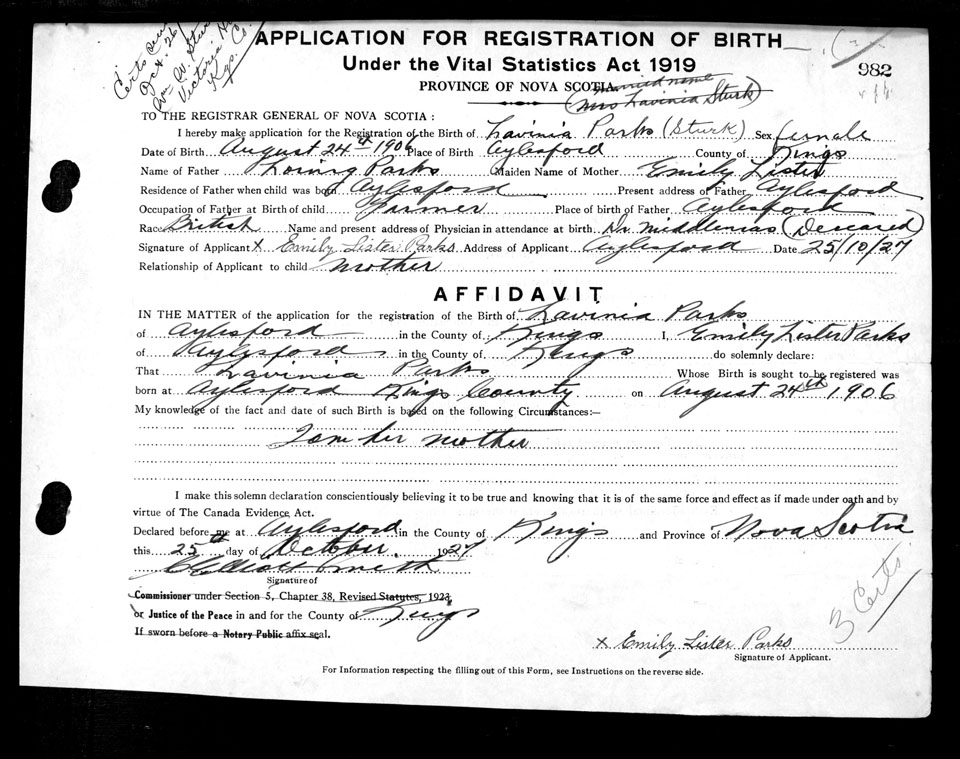 Certs sent
Oct. 26
Wm W. Sturk
Victoria
Kgs. Co.
APPLICATION FOR REGISTRATION OF BIRTH
Under the Vital Statistics Act 1919
982
PROVINCE OF NOVA SCOTIA
married name
(Mrs Lavinia Sturk)
TO THE REGISTRAR GENERAL OF NOVA SCOTIA:
I hereby make application for the Registration of the Birth of Lavinia Parks (Sturk) Sex female
Date of Birth August 24th 1906 Place of Birth Aylesford County of Kings
Name of Father Loring Parks Maiden Name of Mother Emily Lister
Residence of Father when child was born Aylesford Present address of Father Aylesford
Occupation of Father at Birth of child Farmer Place of birth of Father Aylesford
Race British Name and present address of Physician in attendance at birth Dr (Deceased)
Signature of Applicant x Emily Lister Parks Address of Applicant Aylesford Date 25/10/27
Relationship of Applicant to child mother
AFFIDAVIT
IN THE MATTER of the application for the registration of the Birth of Lavinia Parks
of Aylesford in the County of Kings I, Emily Lister Parks
of Aylesford in the County of Kings do solemnly declare:
That Lavinia Parks Whose Birth is sought to be registered was
born at Aylesford Kings County on August 24th 1906
My knowledge of the fact and date of such Birth is based on the following Circumstances:—
I am her mother
I make this solemn declaration conscientiously believing it to be true and knowing that it is of the same force and effect as if made under oath and by
virtue of The Canada Evidence Act.
Declared before me at Aylesford in the County of Kings and Province of Nova Scotia
this 25th day of October 1927
Elliott Smith
Signature of
Commissioner under Section 5, Chapter 38, Revised Statutes, 1923
or Justice of the Peace in and for the County of Kings
If sworn before a Notary Public affix seal.
3 Certs
x Emily Lister Parks
Signature of Applicant.
For Information respecting the filling out of this Form, see Instructions on the reverse side.